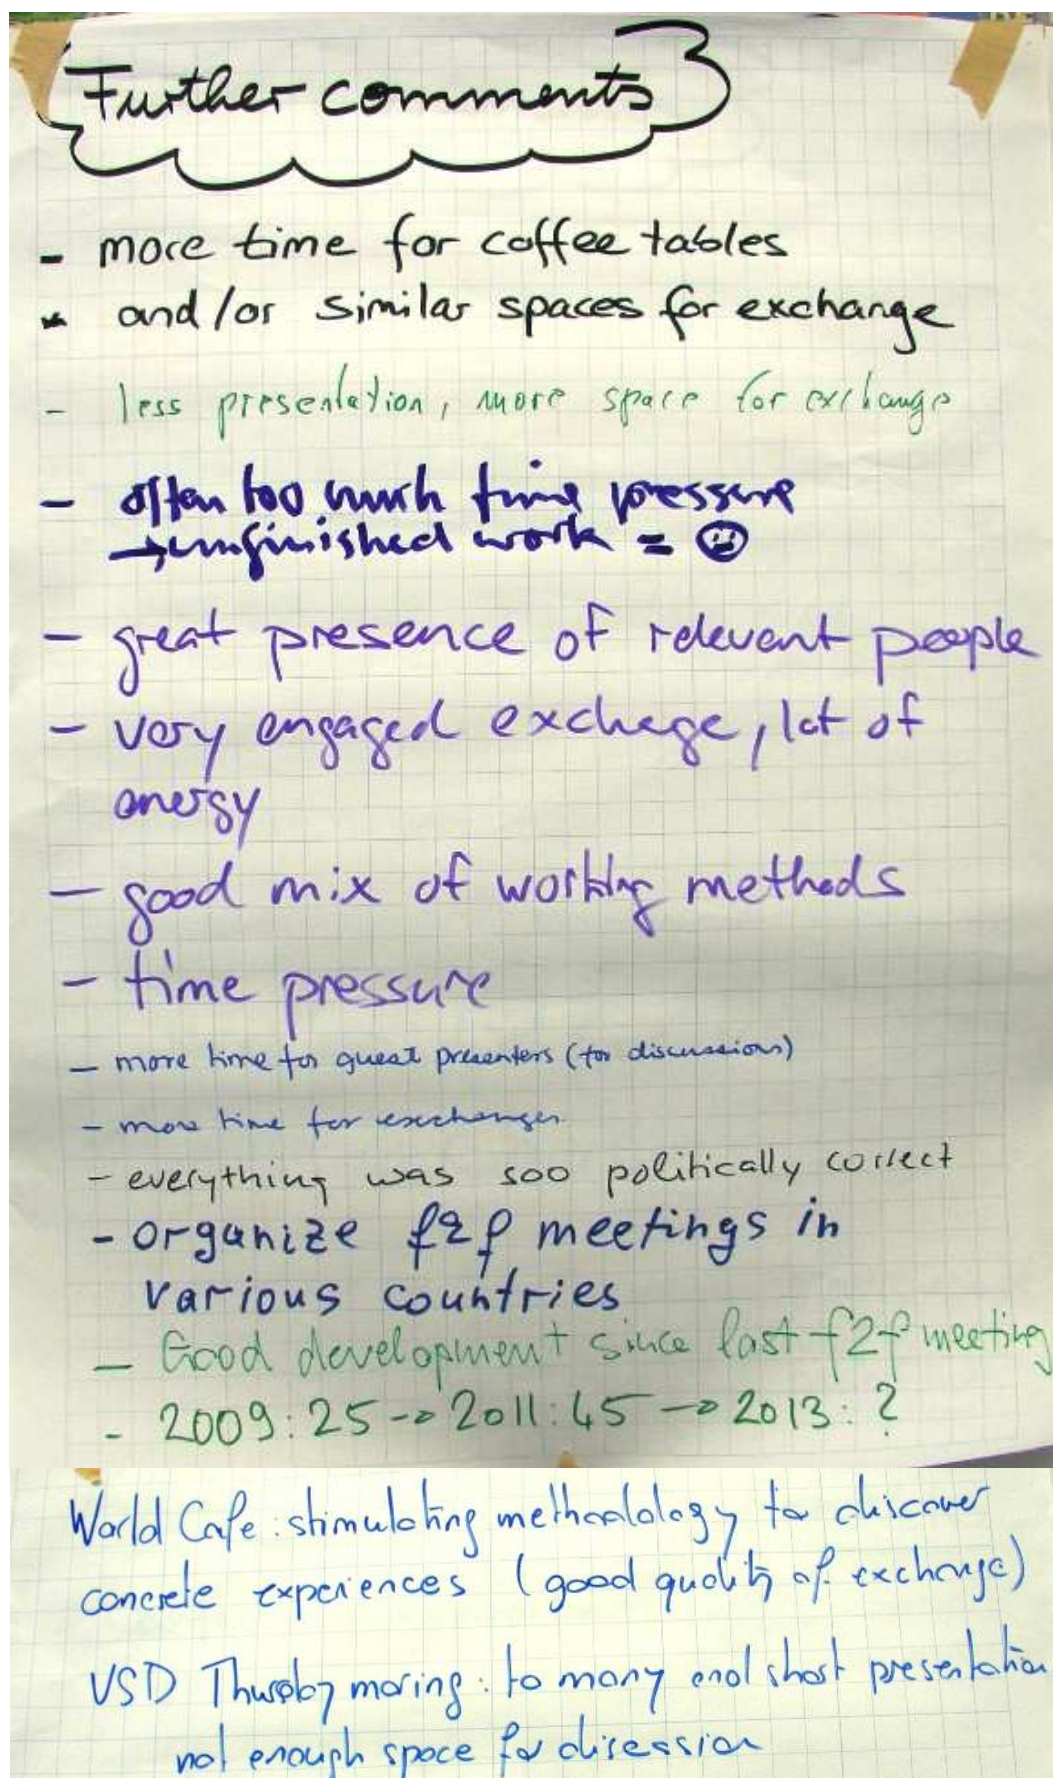 Further comments
- more time for coffee tables
- and/or similar spaces for exchange
- less presentation, more space for exchange
- often too much time pressure
→ unfinished work = ☹
- great presence of relevant people
- very engaged exchage, lot of
energy
- good mix of working methods
- time pressure
- more time for guest presenters (for discussions)
- more time for exchanges
- everything was soo politically correct
- organize f2f meetings in
various countries
- Good development since last f2f meeting
- 2009: 25 → 2011: 45 → 2013: ?
World Cafe: stimulating methodology to discover
concrete experiences (good quality of exchange)
VSD Thursday moring: to many and short presentation
not enough space for